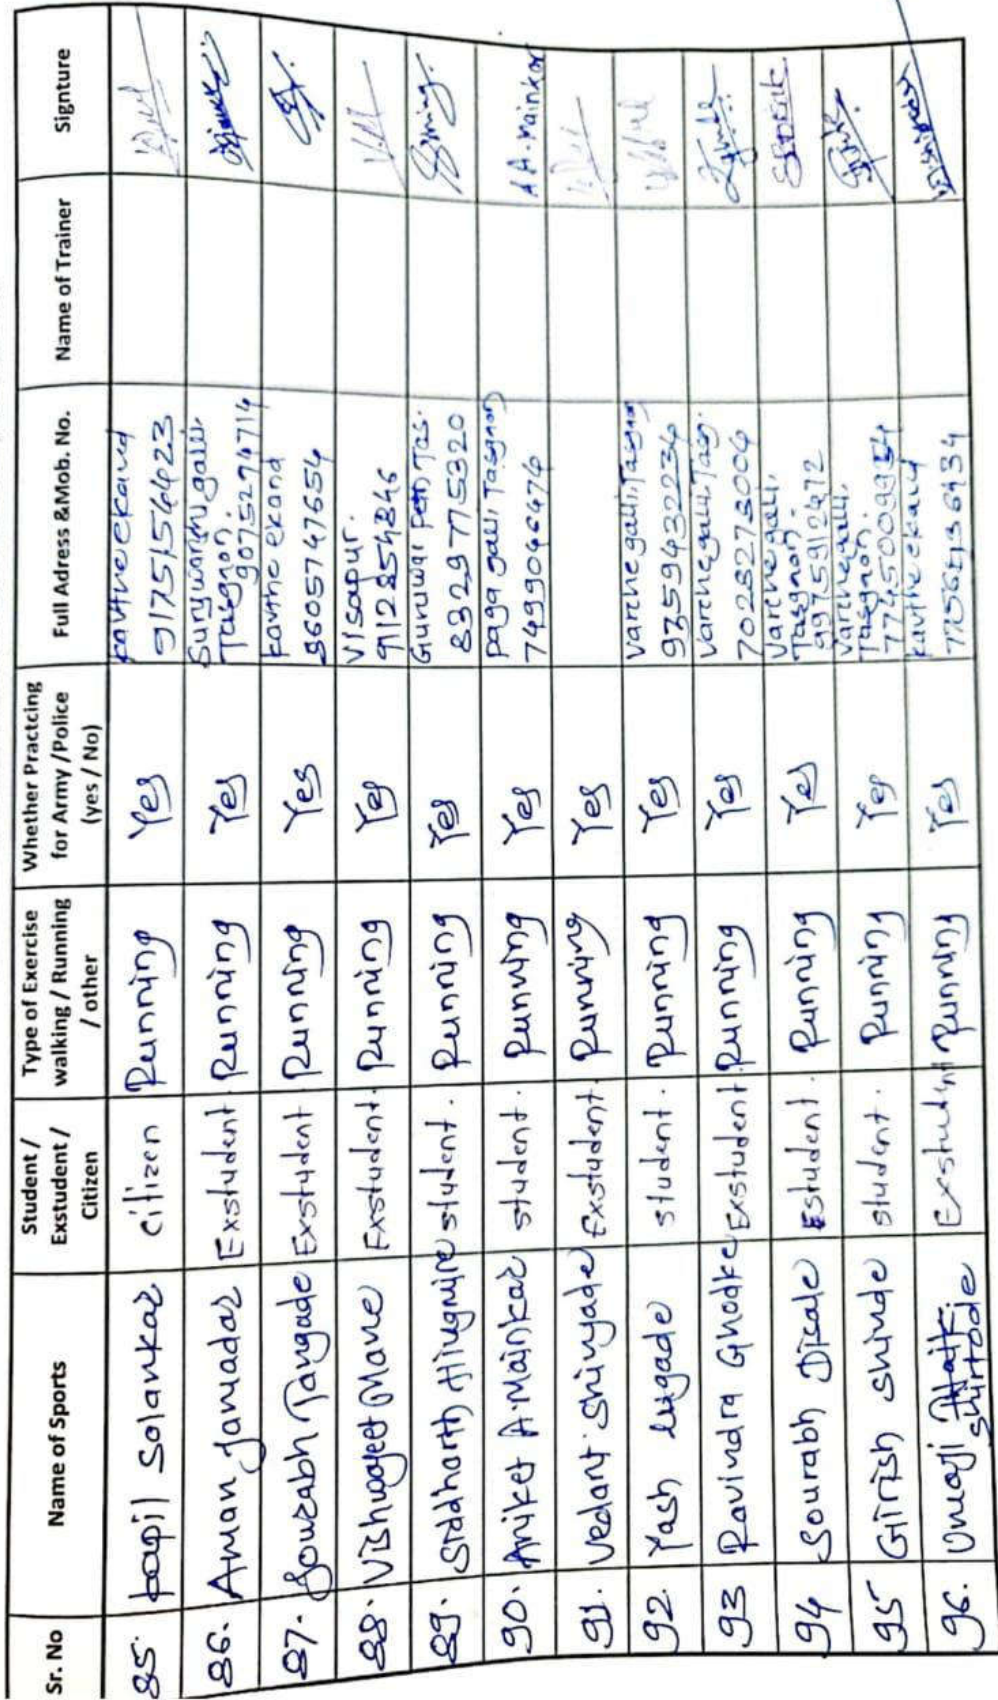 Sr. No Name of Sports Student / Exstudent / Citizen Type of Exercise walking / Running / other Whether Practcing for Army /Police (yes / No) Full Adress &Mob. No. Name of Trainer Signture
85. kapil Solankar citizen Running Yes kavtheekand 9175156423
86. Aman Jamadar Exstudent Running Yes Suryuvanshi galli. Tasgaon.
87. Sourabh Tangade Exstudent Running Yes kavthe ekand 8605747654
88. Vishwajeet Mane Exstudent. Running Yes Visapur.
89. Siddharth student. Running Yes Guruwar Peth, Tas. 8329775320
90. Aniket A. Mainkar student. Running Yes paga galli, Tasgaon 7499046476 A A. Mainkar
91. Vedant Exstudent. Running Yes
92. Yash Lugade student. Running Yes varchegalli, Tasgaon 9359432234
93 Ravindra Ghodke Exstudent. Running Yes varchegalli. Tasg. 7028273004
94 Sourabh Disale Estudent. Running Yes Varchegalli, Tasgaon. 9975912472
95 Girish Shinde student. Running Yes Varchegalli, Tasgaon.
96. Umaji Shirtode Exstudent Running Yes kavthe ekand